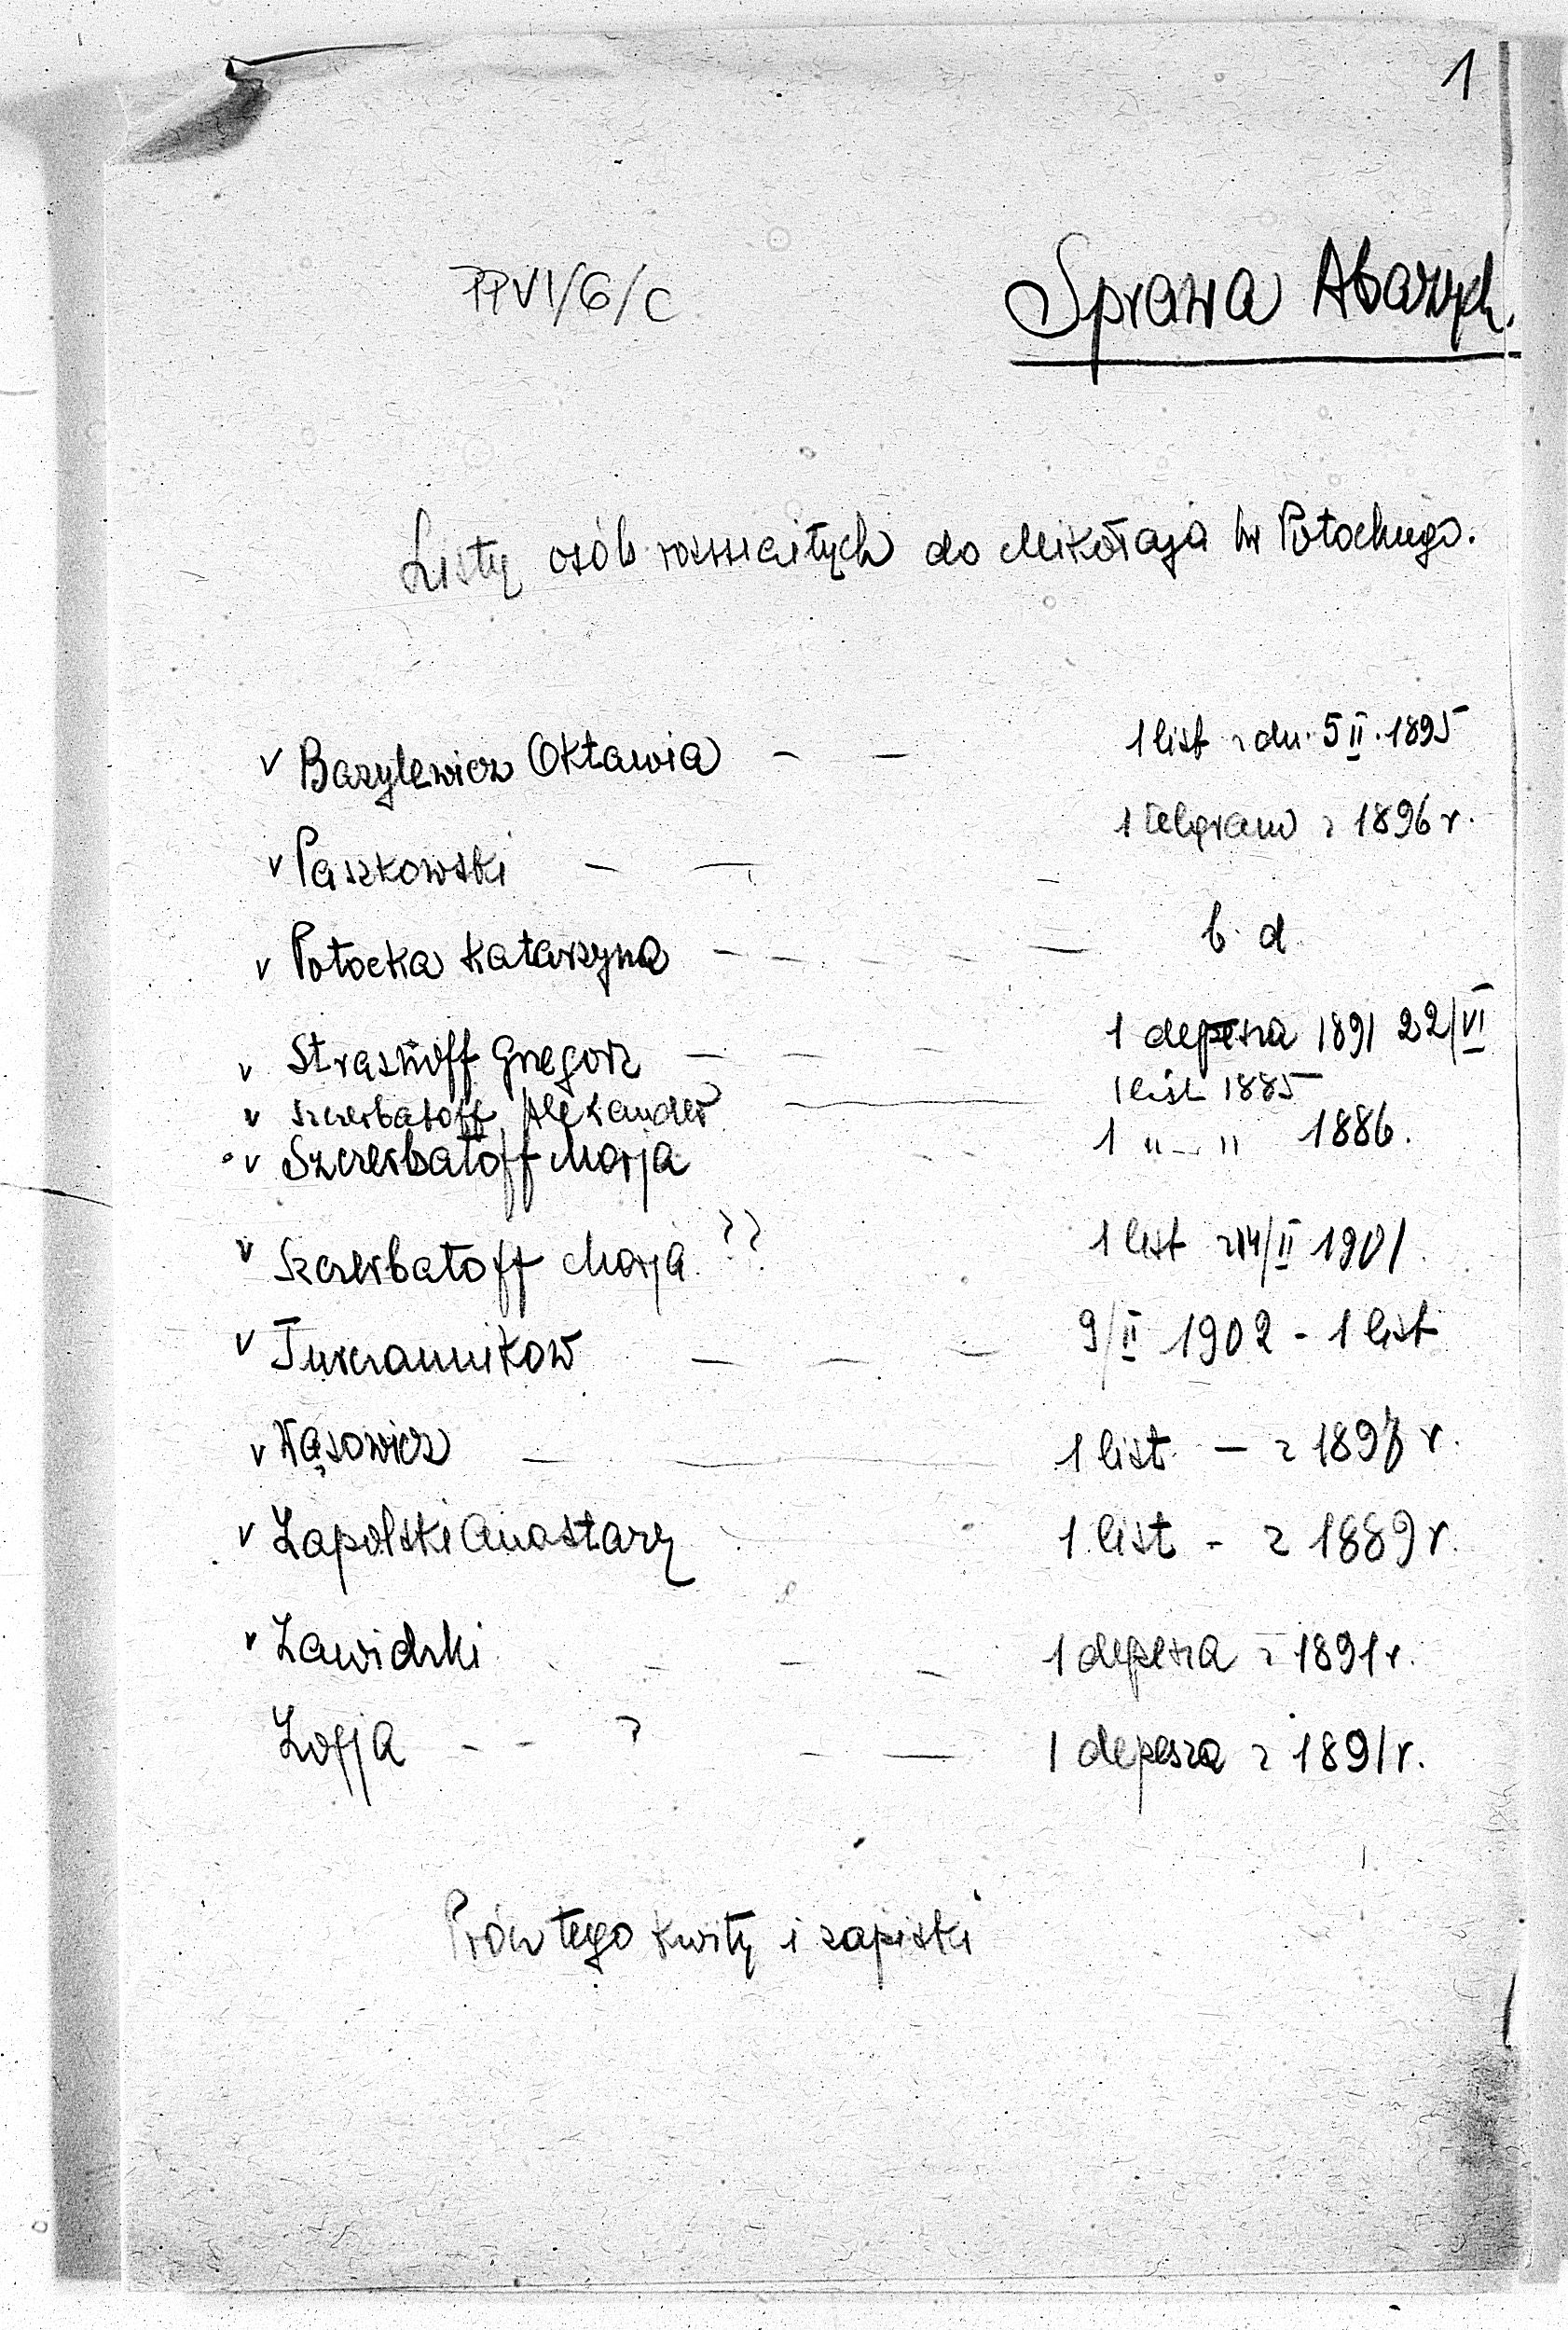 1
PPVI/6/C
Sprawa Abazych.
Listy osób rozmaitych do Mikołaja hr Potockiego.
v Bazylewicz Oktawia - - 1 list z dn. 5 II. 1895
v Paszkowski - - - 1 telegram z 1896 r.
v Potocka Katarzyna - - - - - b. d
v Strasnoff Gregorz - - - 1 depesza 1891 22/VI
v Szczerbatoff Alexander — 1 list 1885
v Szczerbatoff Marja - - 1 " - " 1886.
v Szczerbatoff Marja ?? 1 list z 14/II 1901.
v Turczannikow - - - 9/II 1902 - 1 list
v Wąsowicz - — 1 list - z 1897 r.
v Zapolski Anastazy 1 list - z 1889 r.
v Zawidzki - - - 1 depesza z 1891 r.
Zofja - - ? - — 1 depesza z 1891 r.
Prócz tego kwity i zapiski